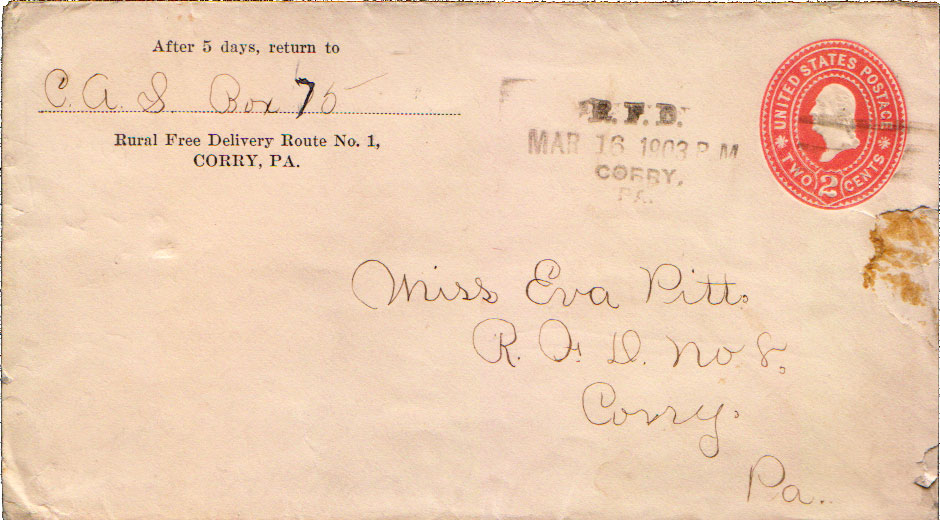 After 5 days, return to
C. A. S. Box 75
Rural Free Delivery Route No. 1,
CORRY, PA.
R. F. D.
MAR 16 1903 P M
CORRY,
PA.
UNITED STATES POSTAGE
TWO 2 CENTS
Miss Eva Pitt.
R. F. D. No 8.
Corry.
Pa.